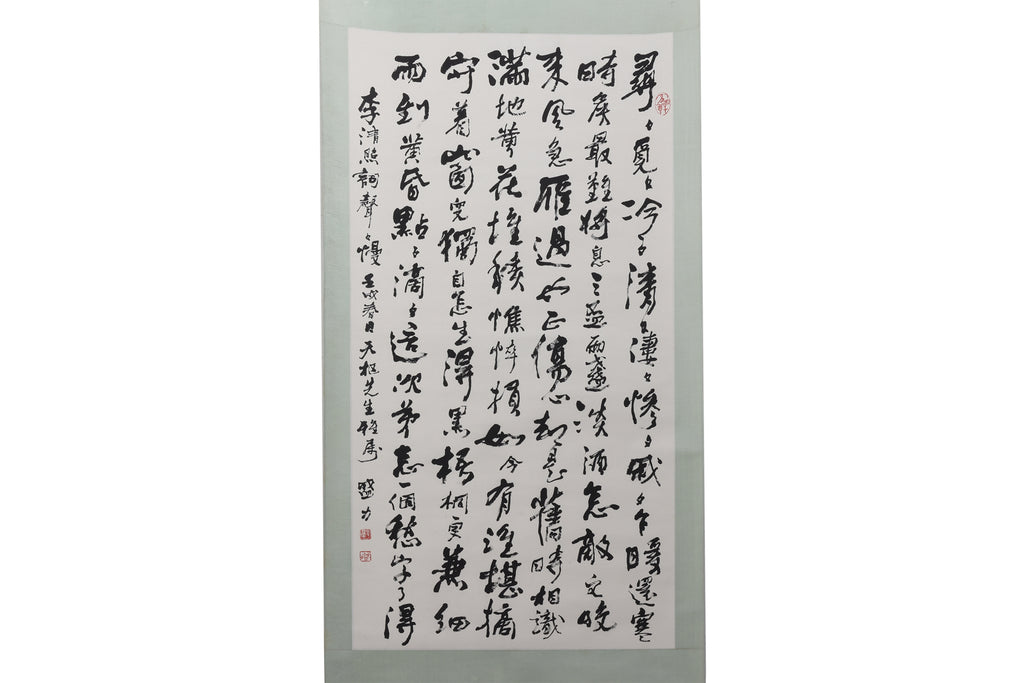 尋〻覓〻冷〻清〻淒〻慘〻戚〻乍暖還寒
時候最難將息三盃兩盞淡酒怎敵它晚
來風急雁過也正傷心却是舊時相識
滿地黃花堆積憔悴損如今有誰堪摘
守着窗兒獨自怎生得黑梧桐更兼細
雨到黃昏點〻滴〻這次第怎一個愁字了得
李清照詞聲〻慢 壬戌春日 天樞先生雅屬